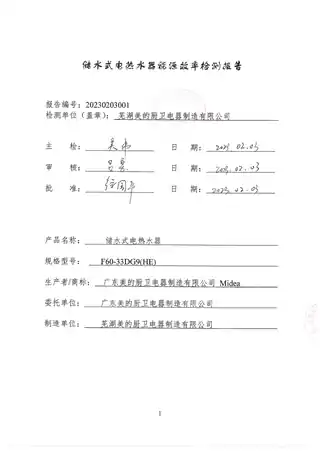 储水式电热水器能源效率检测报告
报告编号：20230203001
检测单位（盖章）：芜湖美的厨卫电器制造有限公司
主 检： 日 期：2023.02.03
审 核： 日 期：2023.02.03
批 准： 日 期：2023.02.03
产品名称： 储水式电热水器
规格型号： F60-33DG9(HE)
生产者/商标： 广东美的厨卫电器制造有限公司 Midea
委托单位： 广东美的厨卫电器制造有限公司
制造单位： 芜湖美的厨卫电器制造有限公司
1